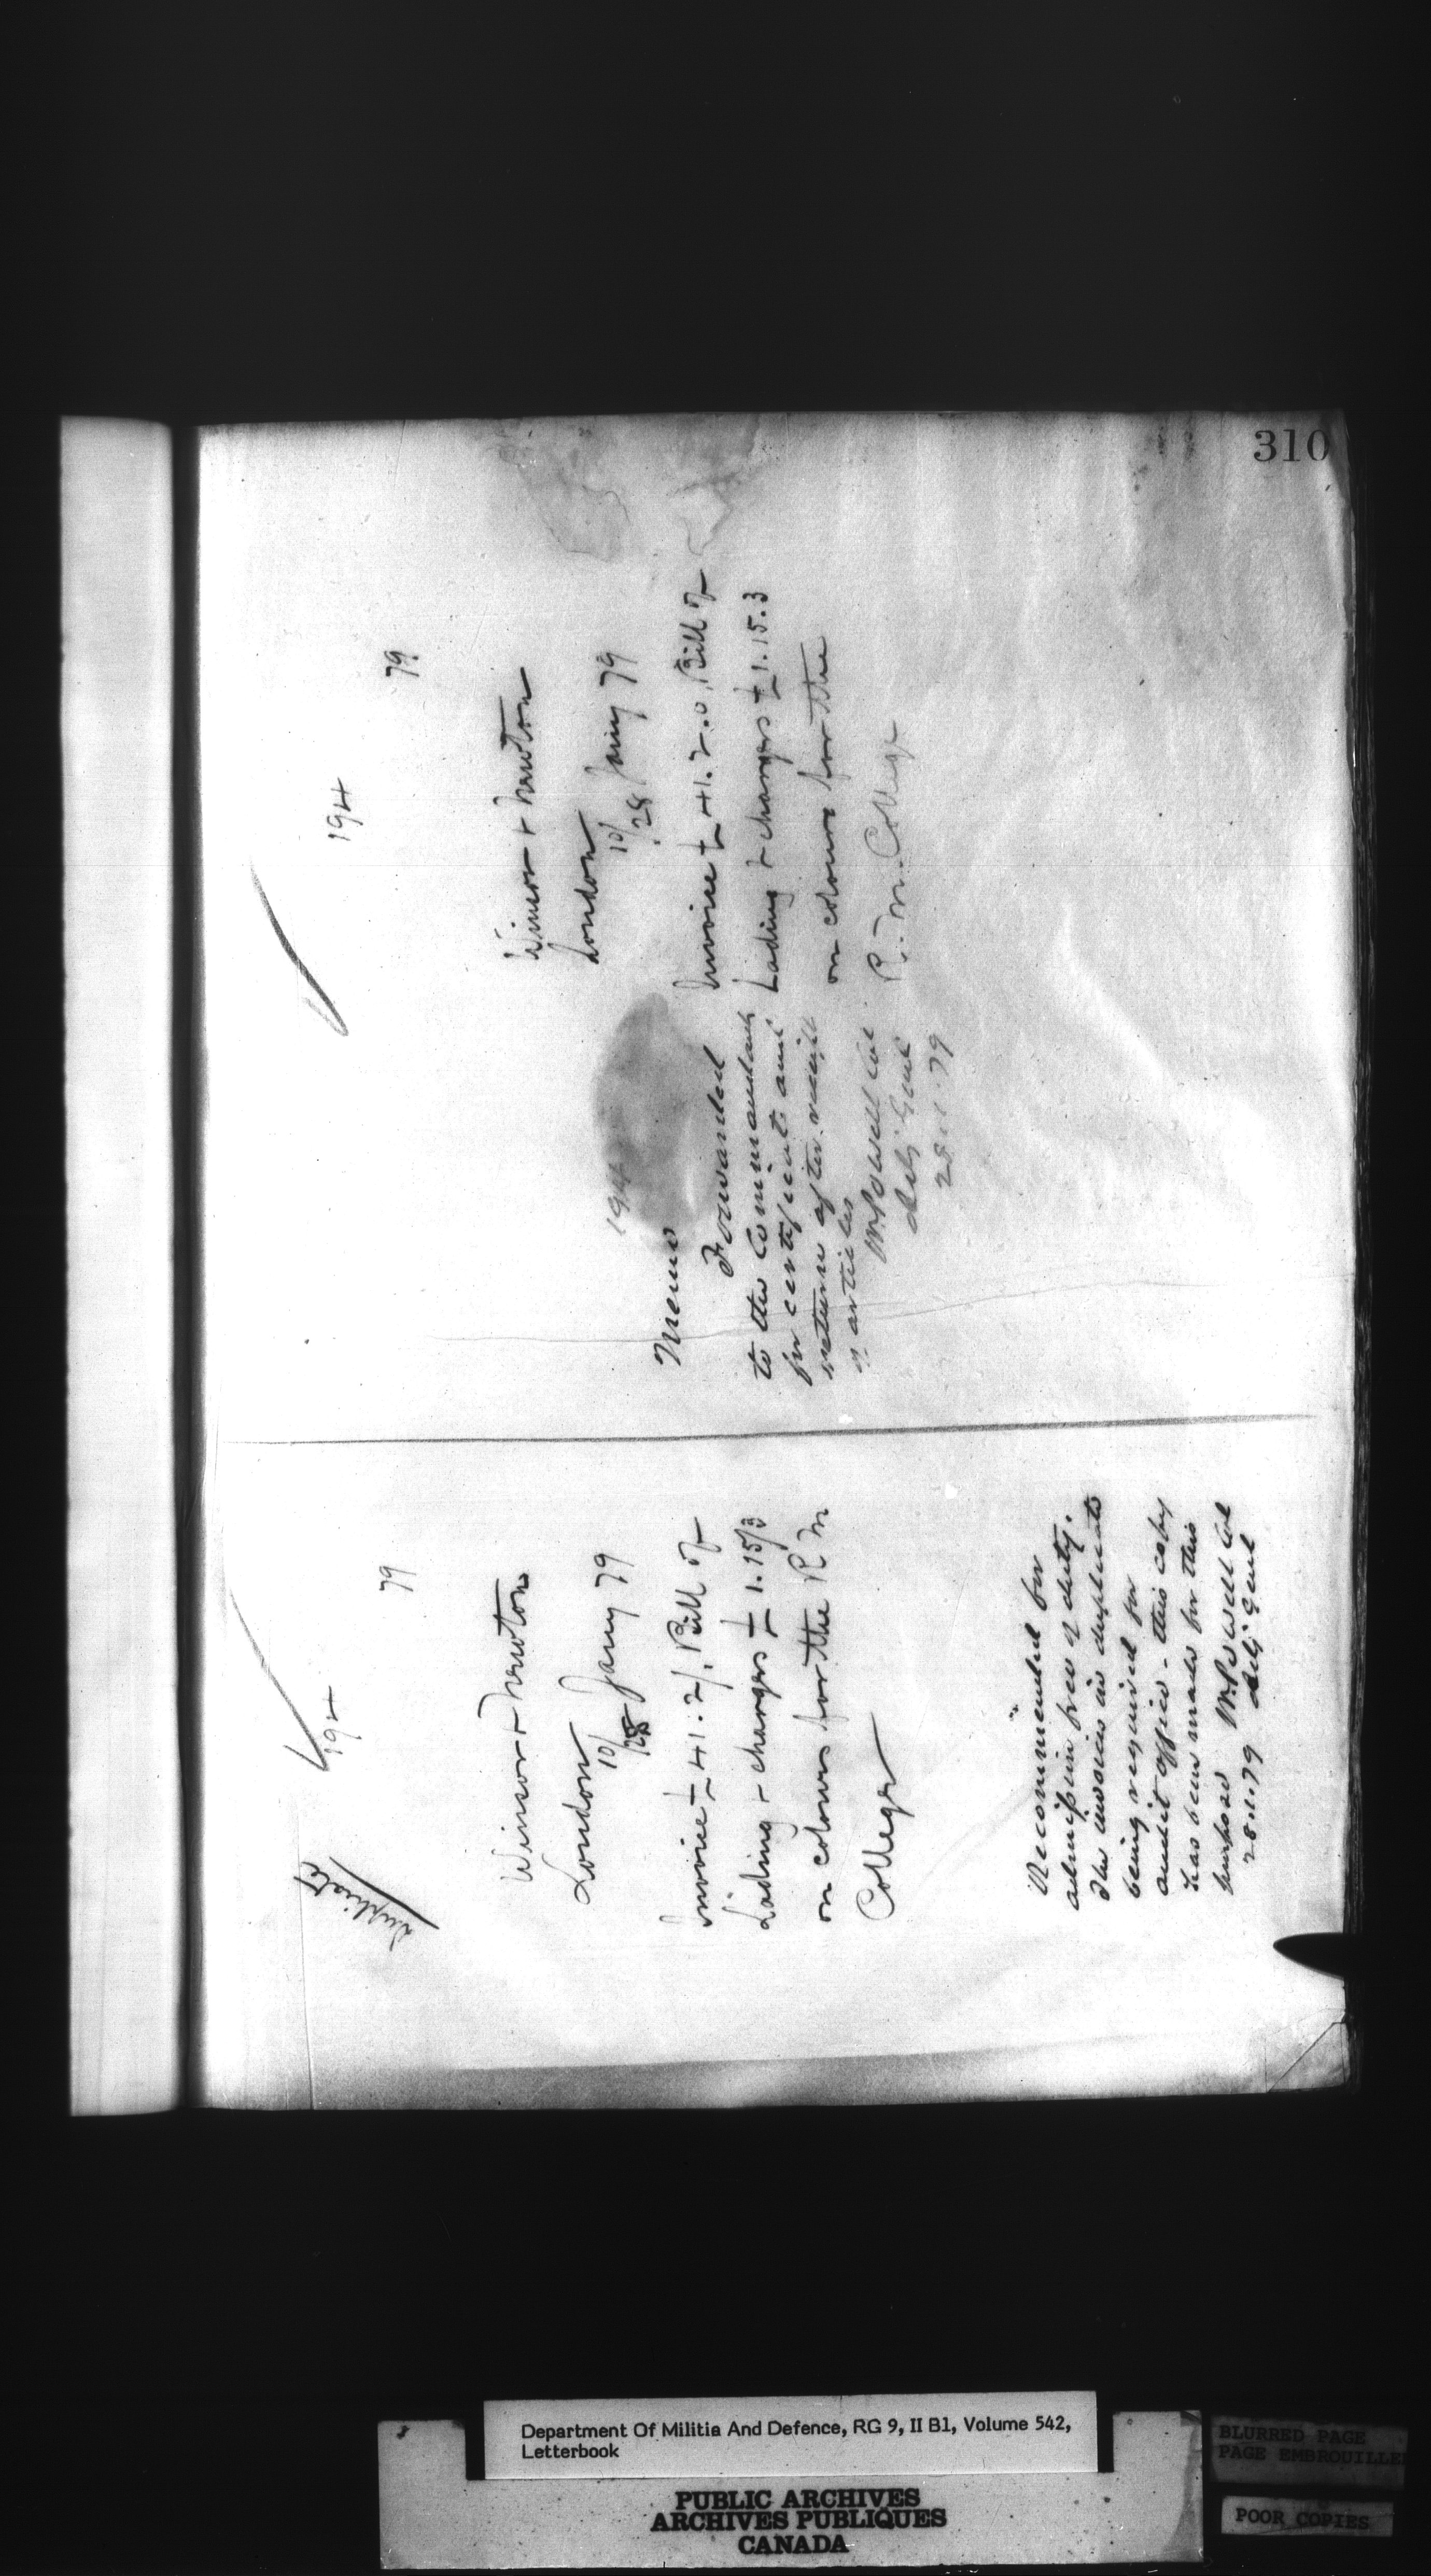 310
Duplicate
194
79
Winsor & Newton
London
10/28 Jany 79
Invoice £41:2/. Bill of
Lading & charges £1.15/3
on colours for the R M
College
Recommended for
admission free of duty.
The invoices in duplicate
being required for
audit office - this copy
has been made for this
purpose W Powell Col
28.1.79 Adj Genl
194
79
Winsor & Newton
London
10/28 Jany 79
Invoice £41.2.0. Bill of
Lading & charges £1.15.3
on colours for the
R. M. College
194
Memo
Forwarded
to the Commandant
for certificate and
return after receipt
of articles
W Powell Col
Adj Genl
28.1.79
Department Of Militia And Defence, RG 9, II B1, Volume 542,
Letterbook
PUBLIC ARCHIVES
ARCHIVES PUBLIQUES
CANADA
BLURRED PAGE
PAGE EMBROUILLE
POOR COPIES